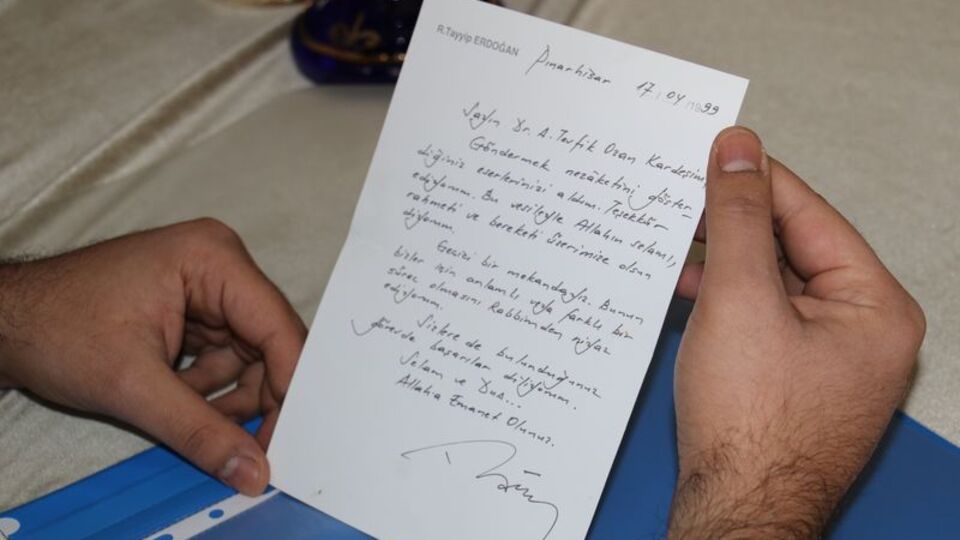 R.Tayyip ERDOĞAN
Pınarhisar 17/04/1999
Sayın Dr. A. Tevfik Ozan Kardeşim,
Göndermek nezâketini göster-
diğiniz eserlerinizi aldım. Teşekkür
ediyorum. Bu vesileyle Allahın selamı,
rahmeti ve bereketi üzerimize olsun
diyorum.
bir mekandayız. Bunun
bizler için anlamlı veya farklı bir
süreç olmasını Rabbimden niyaz
ediyorum.
Sizlere de bulunduğunuz
görevde başarılar diliyorum.
Selam ve Dua...
Allaha Emanet Olunuz.